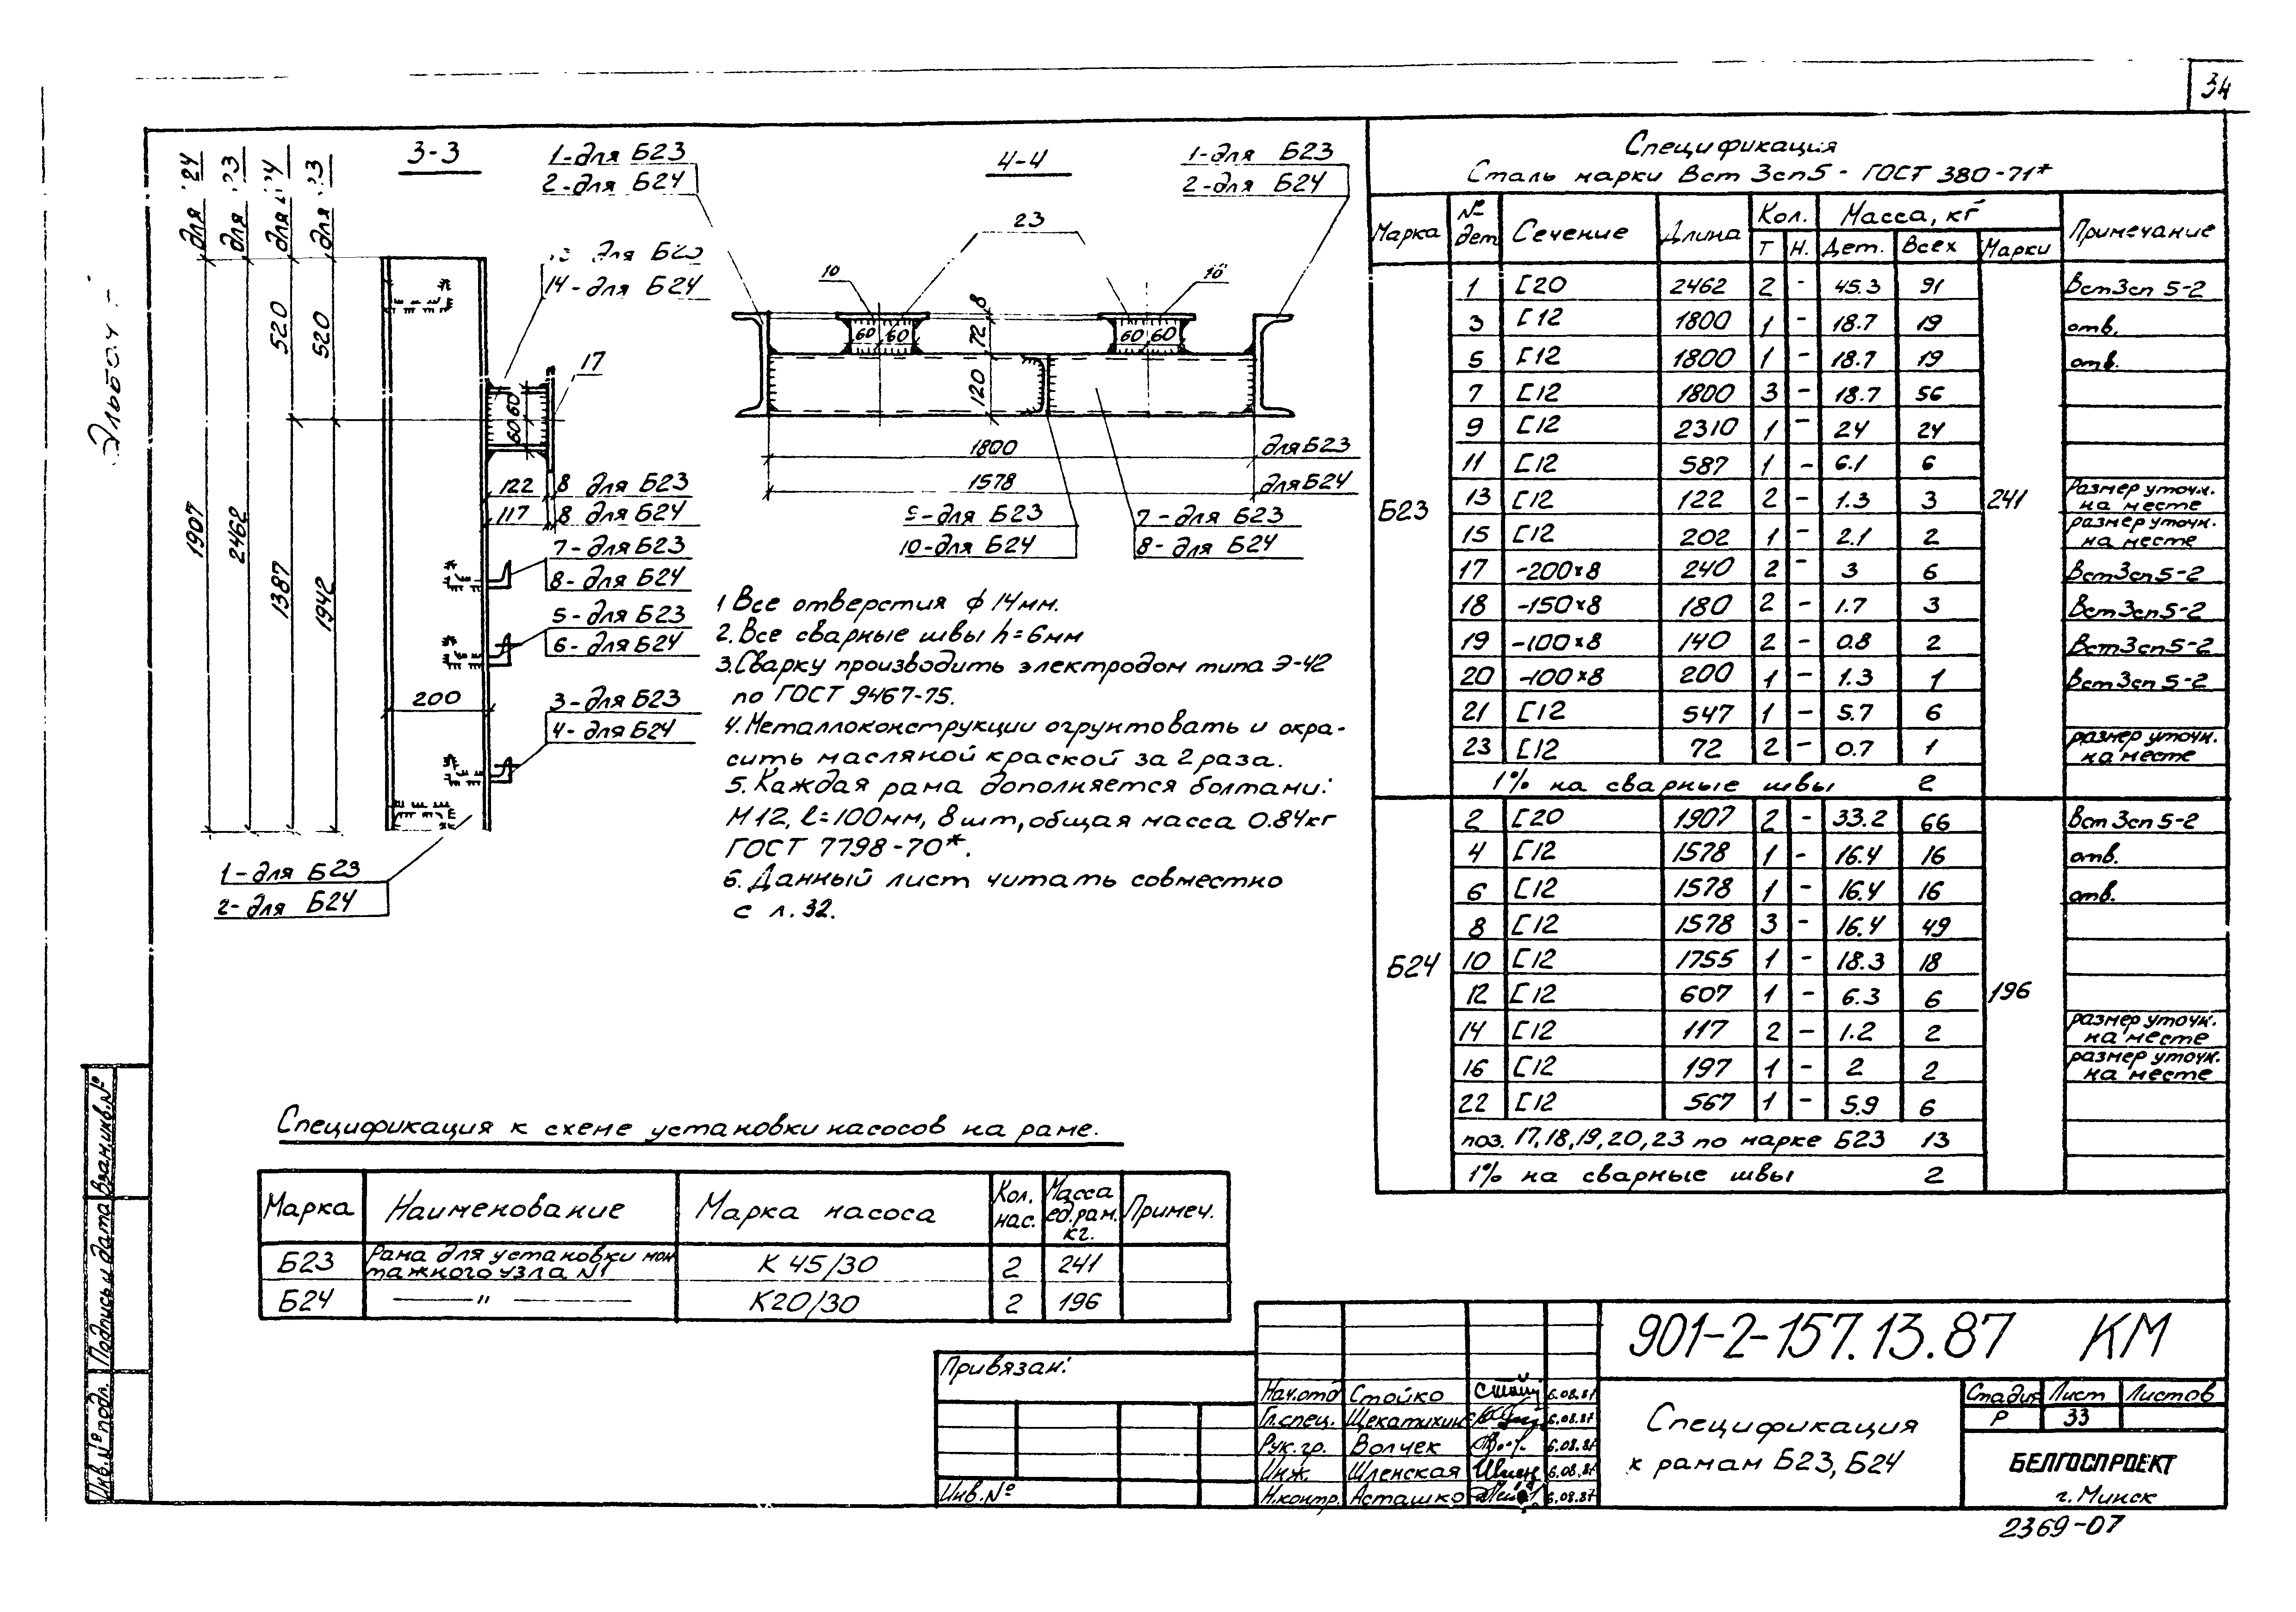 34
Альбом
3-3
для 24
для 23
для Б24
для 23
520
520
1907
2462
1387
1942
200
1-для Б23
2-для Б24
14-для Б24
17
60 60
122 8 для Б23
117 8 для Б24
7-для Б23
8-для Б24
5-для Б23
6-для Б24
3-для Б23
4-для Б24
1-для Б23
2-для Б24
4-4
1-для Б23
2-для Б24
23
10
10
8
72
120
60 60
60 60
1800 для Б23
1578 для Б24
9-для Б23
10-для Б24
7-для Б23
8-для Б24
1 Все отверстия ϕ 14мм.
2. Все сварные швы h=6мм
3. Сварку производить электродом типа Э-42
по ГОСТ 9467-75.
4. Металлоконструкции огрунтовать и окра-
сить масляной краской за 2 раза.
5. Каждая рама дополняется болтами:
М12, ℓ=100мм, 8шт, общая масса 0.84кг
ГОСТ 7798-70*.
6. Данный лист читать совместно
с л.32.
Спецификация
Сталь марки Вст 3сп5 - ГОСТ 380-71*
Марка № дет Сечение Длина Кол. Масса, кг Примечание
Т Н. Дет. Всех Марки
Б23 241
1 [20 2462 2 - 45.3 91 Вст3сп 5-2
3 [12 1800 1 - 18.7 19 отв.
5 [12 1800 1 - 18.7 19 отв.
7 [12 1800 3 - 18.7 56
9 [12 2310 1 - 24 24
11 [12 587 1 - 6.1 6
13 [12 122 2 - 1.3 3 Размер уточн. на месте
15 [12 202 1 - 2.1 2 размер уточн. на месте
17 -200×8 240 2 - 3 6 Вст3сп5-2
18 -150×8 180 2 - 1.7 3 Вст3сп5-2
19 -100×8 140 2 - 0.8 2 Вст3сп5-2
20 -100×8 200 1 - 1.3 1 Вст3сп5-2
21 [12 547 1 - 5.7 6
23 [12 72 2 - 0.7 1 размер уточн. на месте
1% на сварные швы 2
Б24 196
2 [20 1907 2 - 33.2 66 Вст3сп5-2
4 [12 1578 1 - 16.4 16 отв.
6 [12 1578 1 - 16.4 16 отв.
8 [12 1578 3 - 16.4 49
10 [12 1755 1 - 18.3 18
12 [12 607 1 - 6.3 6
14 [12 117 2 - 1.2 2 размер уточн. на месте
16 [12 197 1 - 2 2 размер уточн. на месте
22 [12 567 1 - 5.9 6
поз. 17,18,19,20,23 по марке Б23 13
1% на сварные швы 2
Спецификация к схеме установки насосов на раме.
Марка Наименование Марка насоса Кол. нас. Масса ед.рам. кг. Примеч.
Б23 Рама для установки мон
тажного узла №1 К 45/30 2 241
Б24 — " — К20/30 2 196
Привязан:
Инв.№
Нач.отд Стойко 6.08.87
Гл.спец. 6.08.87
Рук.гр. Волчек 6.08.87
Инж. Шленская 6.08.87
Н.контр. Асташко 6.08.87
901-2-157.13.87 КМ
Спецификация
к рамам Б23, Б24
Стадия Лист Листов
Р 33
БЕЛГОСПРОЕКТ
г.Минск
2369-07
Инв.№ подл. Подпись и дата Взам.инв.№